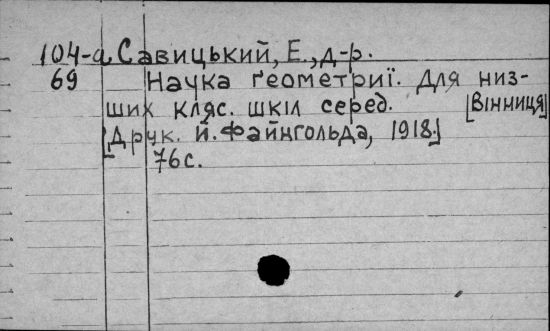 104-а Савицький, Е., д-р.
69 Наука ґеометриї. Для низ-
ших кляс. шкіл серед. [Вінниця]
[Друк. Й. Файнгольда, 1918.]
76 с.